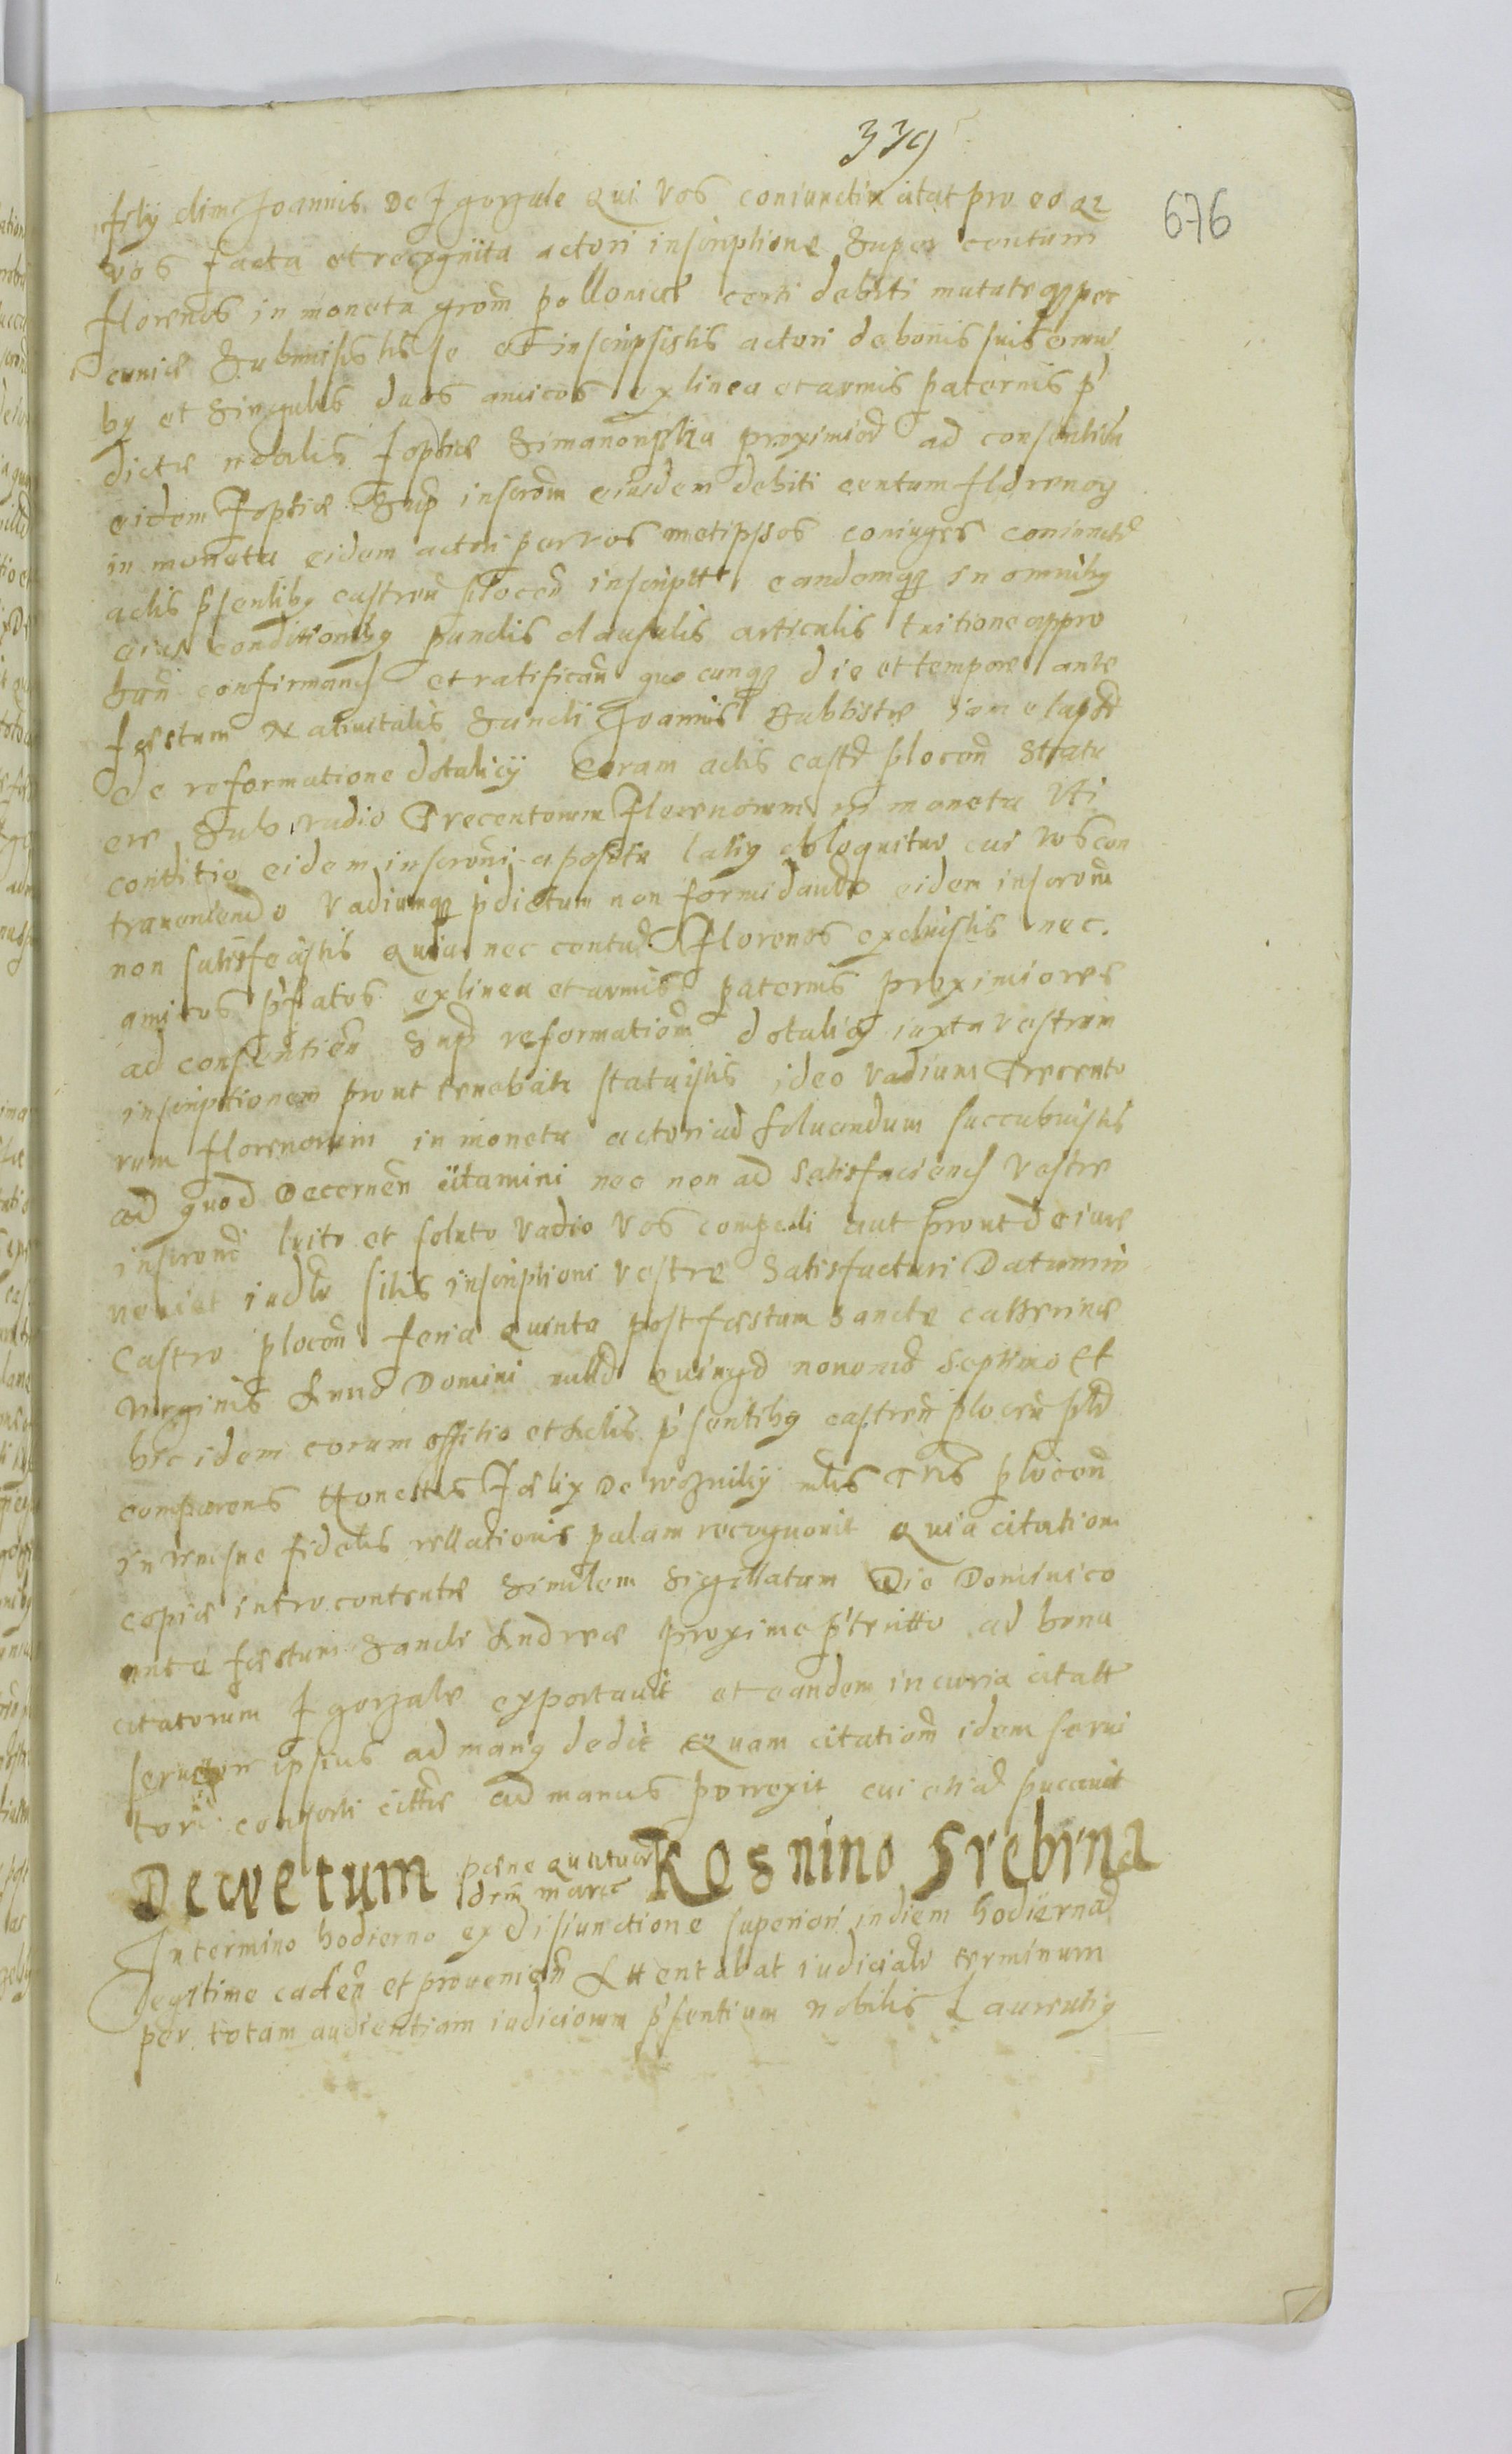 339
676
filij olim Joannis De Jgorzale Qui Vos coniunctim citat pro eo Qz
vos facta et recognita actori inscriptione Super centum
florenos in moneta grom pollonicae certi debiti mutateqz pec
cuniae Submisistis se et inscripsistis actori de bonis suis omni
by et Singulis duos amicos ex linea et armis paternis p
dictae nobilis Simanowska proximior ad consentien
eidem Sup inscrom eiusdem debiti centum florenoz
in moneta eidem actori per vos metipsos coniuges coniunct
actis psentiby castren plocen inscriptt eandemqz in omniby
eius conditioniby punctis clausulis articulis tuitione appro
ban confirmand et ratifican quocunqz die et tempore ante
festum Natiuitatis Sancti Joannis Babbtistae iam elapso
de reformatione dotalicij Coram actis castr plocen Statu
ere Sub vadio Trecentorum florenorum in moneta Vti
conditio eidem inscroni aposita latiy obloquitur cui vos con
traueniendo Vadiumqz pdictum non formidando eidem inscroni
non satisfecistis Quia nec centum Florenos exoluistis nec.
amicos pfatos ex linea et armis paternis proximiores
ad consentien Sup reformatiom dotalicij iuxta vestram
inscriptionem prout tenebati statuistis ideo vadium Trecento
rum florenorum in moneta actori ad soluendum succubuistis
ad quod Decernen citamini nec non ad Satisfaciend Vestre
inscroni luito et soluto vadio vos compelli aut prout de iure
veniet iudlr sitis inscriptioni vestre Satisfacturi Datum in
Castro plocen feria Quinta post festum Sancte Catherinae
virginis Anno Domini milld Quingd nonomo Septimo Et
hic idem coram offitio et Actis psentiby castren plocen pld
comparens Honestus Foelix De wozniky mlis Tris plocen
in vim sue fidelis rellationis palam recognouit Quia citationi
copiae introcontentae Similem Sigillatam Die Dominico
ante festum Sancti Andreae proxime pteritto ad bona
citatorum Jgorzale exportauit et eandem in curia citatt
seruitori ipsius ad many dedit Quam citatiom idem serui
tor consorti cittae ad manus porrexit cui etiad puccauit
Decretum paene quatuor Marc Kosnino Srebrna
In termino hodierno ex disiunctione superiori in diem hodierna
legitime caden et prouenien Attentabat iudicialr terminum
per totam audientiam iudiciorum psentium nobilis Laurentiy